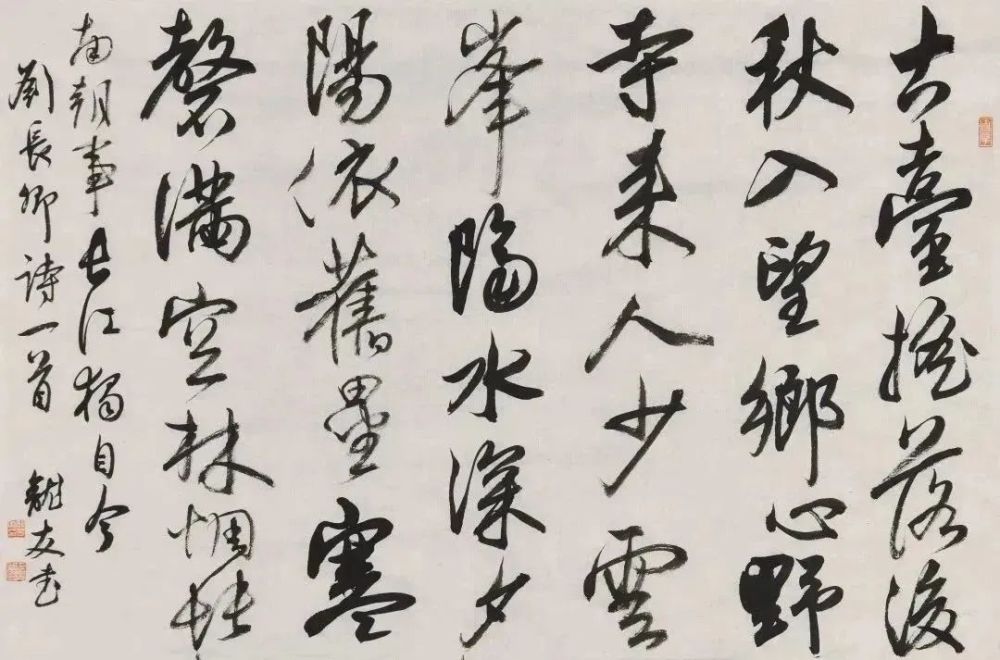 古臺搖落後
秋入望鄉心野
寺来人少雲
峯隔水深夕
陽依舊壘寒
磬滿空林惆悵
南朝事長江獨自今
劉長卿詩一首 友書